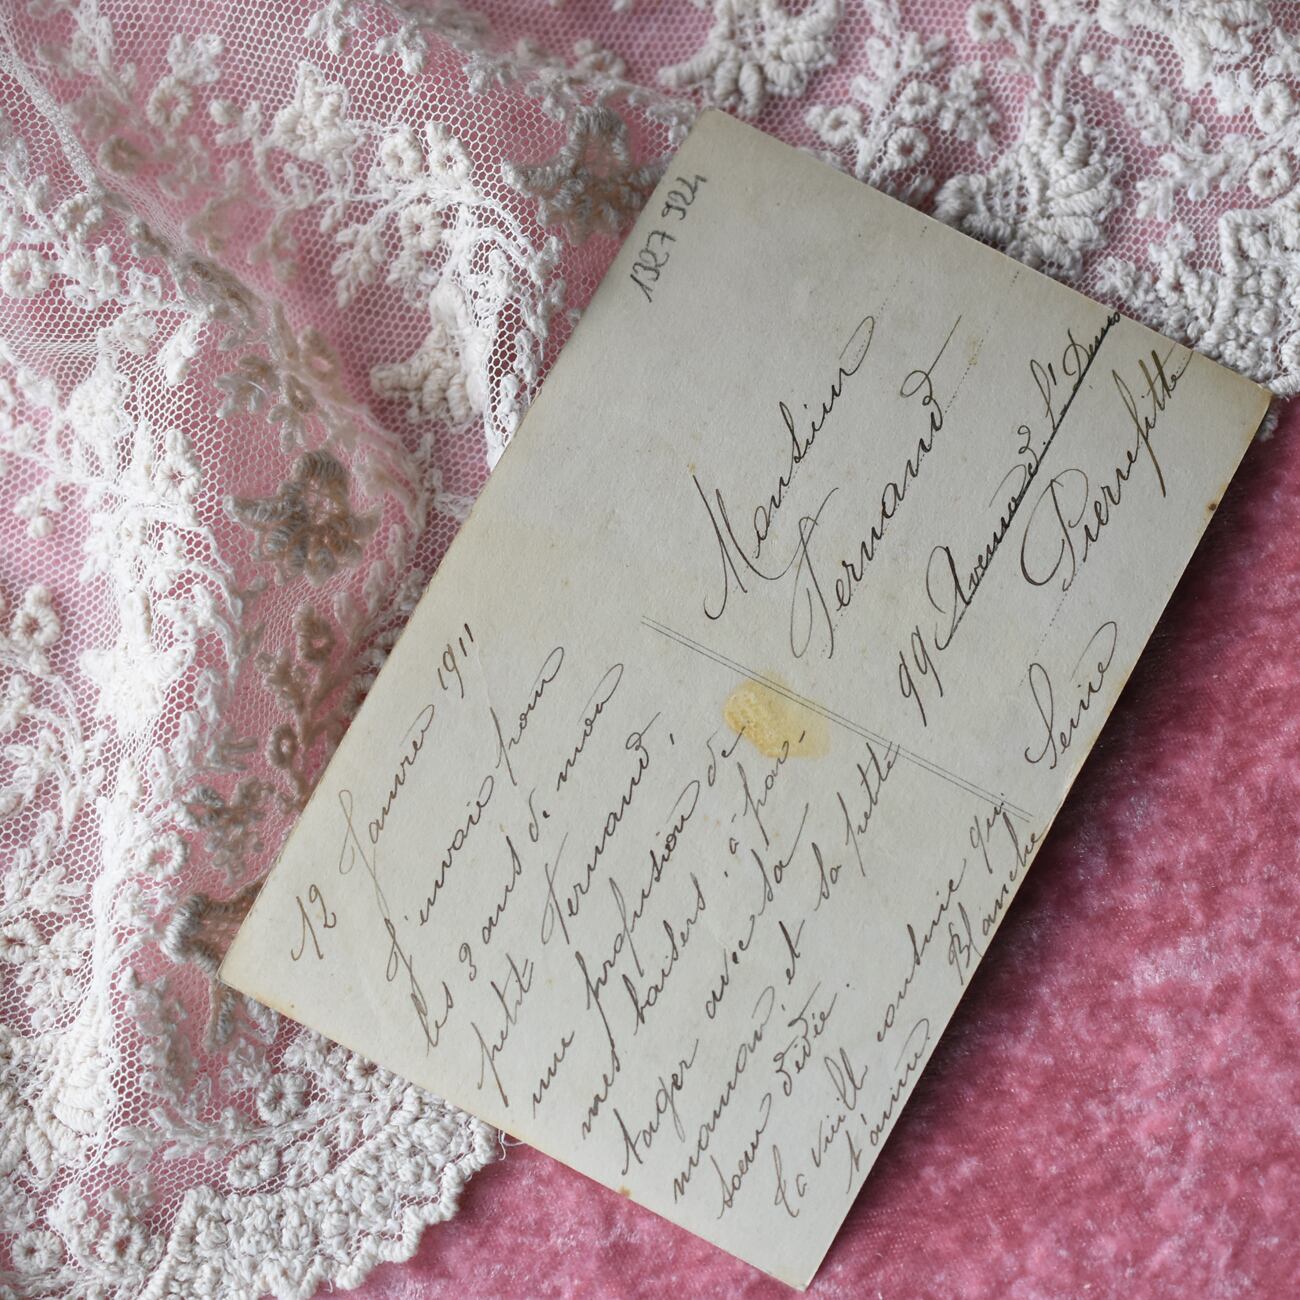 1327 924
12 Janvier 1911
J'envoie pour
les 3 ans de mon
petit Fernand,
une profusion de
mes baisers à par-
tager avec sa
maman, et sa petite
soeur Dédée.
Ta vieille cousine qui
t'aime. Blanche
Monsieur
Fernand
99 Avenue
Pierrefitte
Seine